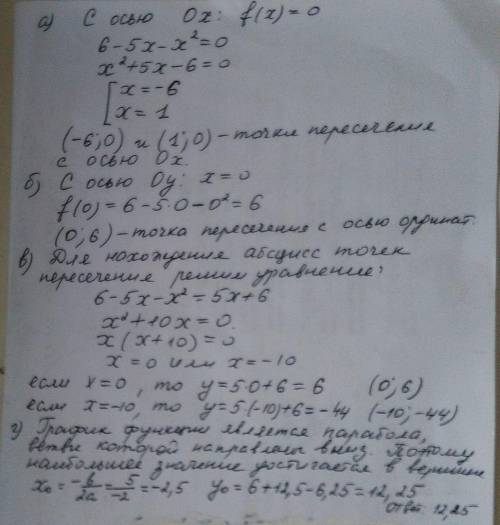 а) С осью Ox: f(x)=0
6-5x-x²=0
x²+5x-6=0
[x=-6
[x=1
(-6;0) и (1;0) - точки пересечения
с осью Ox.
б) С осью Oy: x=0
f(0)=6-5·0-0²=6
(0;6) - точка пересечения с осью ординат.
в) Для нахождения абсцисс точек
пересечения решим уравнение:
6-5x-x²=5x+6
x²+10x=0.
x(x+10)=0
x=0 или x=-10
если x=0, то y=5·0+6=6 (0;6)
если x=-10, то y=5·(-10)+6=-44 (-10;-44)
г) График функции является парабола,
ветви которой направлены вниз. Поэтому
наибольшее значение достигается в вершине
x₀=-b/2a=5/-2=-2,5 y₀=6+12,5-6,25=12,25
Ответ: 12,25